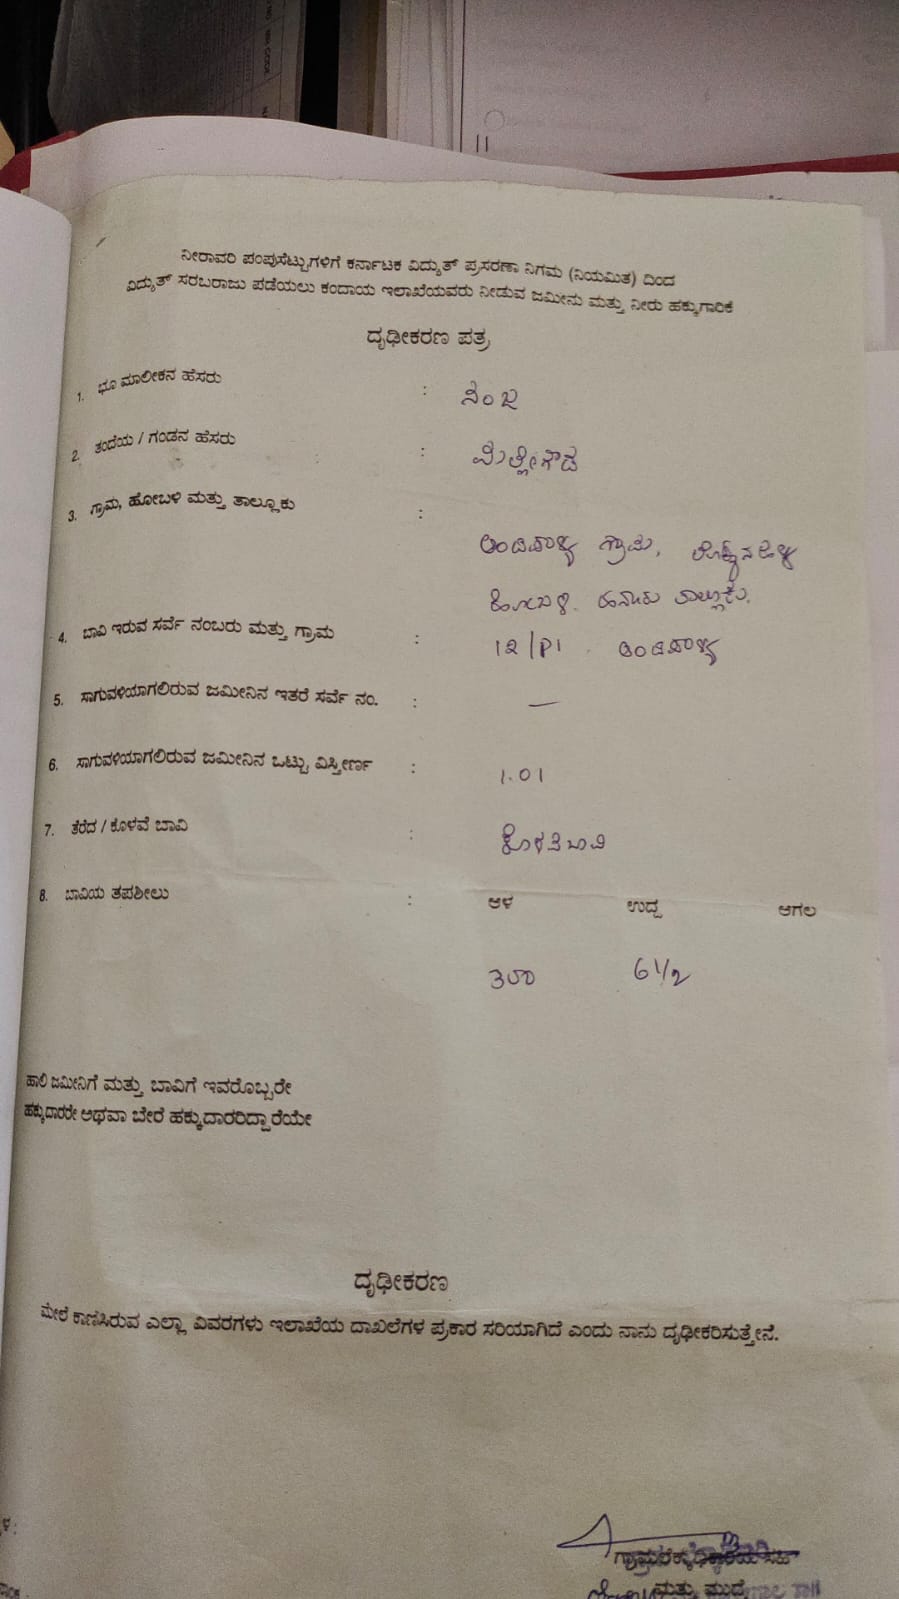 ನೀರಾವರಿ ಪಂಪುಸೆಟ್ಟುಗಳಿಗೆ ಕರ್ನಾಟಕ ವಿದ್ಯುತ್ ಪ್ರಸರಣಾ ನಿಗಮ (ನಿಯಮಿತ) ದಿಂದ
ವಿದ್ಯುತ್ ಸರಬರಾಜು ಪಡೆಯಲು ಕಂದಾಯ ಇಲಾಖೆಯವರು ನೀಡುವ ಜಮೀನು ಮತ್ತು ನೀರು ಹಕ್ಕುಗಾರಿಕೆ
ದೃಢೀಕರಣ ಪತ್ರ
1. ಭೂ ಮಾಲೀಕನ ಹೆಸರು : ನಂಜ
2. ತಂದೆಯ / ಗಂಡನ ಹೆಸರು :
3. ಗ್ರಾಮ, ಹೋಬಳಿ ಮತ್ತು ತಾಲ್ಲೂಕು :
ಗ್ರಾಮ,
ಹೋಬಳಿ. ತಾಲ್ಲೂಕು.
4. ಬಾವಿ ಇರುವ ಸರ್ವೆ ನಂಬರು ಮತ್ತು ಗ್ರಾಮ : 12/P1
5. ಸಾಗುವಳಿಯಾಗಲಿರುವ ಜಮೀನಿನ ಇತರೆ ಸರ್ವೆ ನಂ. : —
6. ಸಾಗುವಳಿಯಾಗಲಿರುವ ಜಮೀನಿನ ಒಟ್ಟು ವಿಸ್ತೀರ್ಣ : 1.01
7. ತೆರೆದ / ಕೊಳವೆ ಬಾವಿ : ಕೊಳವೆ ಬಾವಿ
8. ಬಾವಿಯ ತಪಶೀಲು : ಆಳ ಉದ್ದ ಅಗಲ
300 6 1/2
ಹಾಲಿ ಜಮೀನಿಗೆ ಮತ್ತು ಬಾವಿಗೆ ಇವರೊಬ್ಬರೇ
ಹಕ್ಕುದಾರರೇ ಅಥವಾ ಬೇರೆ ಹಕ್ಕುದಾರರಿದ್ದಾರೆಯೇ
ದೃಢೀಕರಣ
ಮೇಲೆ ಕಾಣಿಸಿರುವ ಎಲ್ಲಾ ವಿವರಗಳು ಇಲಾಖೆಯ ದಾಖಲೆಗಳ ಪ್ರಕಾರ ಸರಿಯಾಗಿದೆ ಎಂದು ನಾನು ದೃಢೀಕರಿಸುತ್ತೇನೆ.
ಮತ್ತು ಮುದ್ರೆ